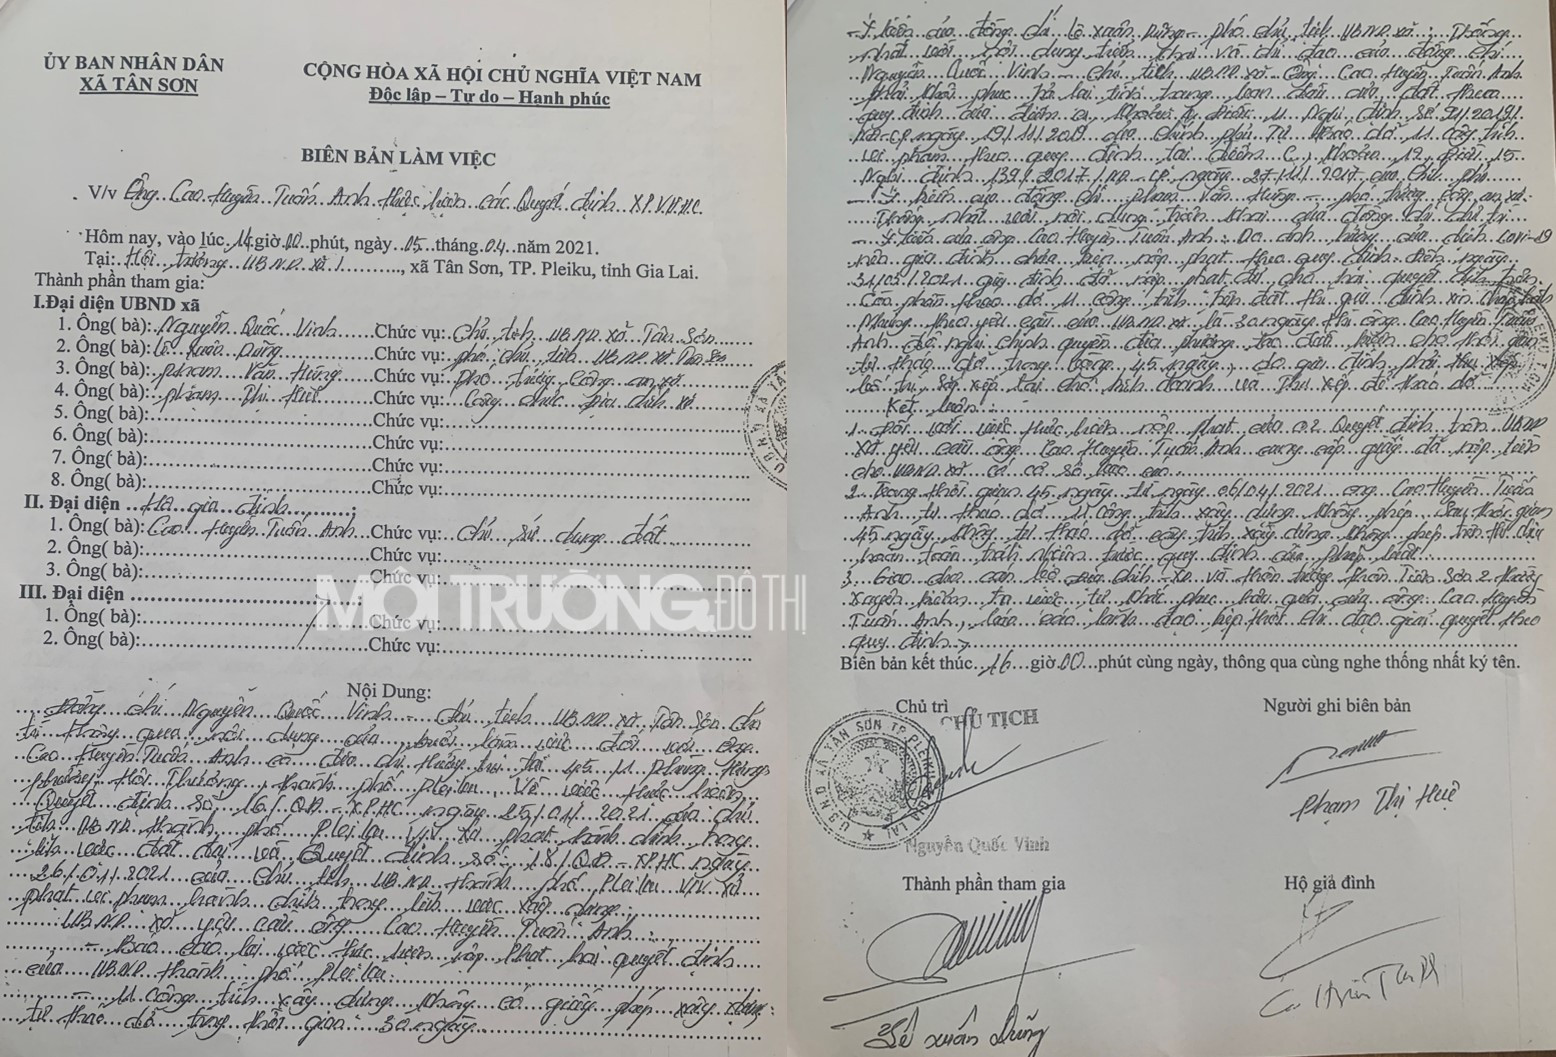 ỦY BAN NHÂN DÂN
XÃ TÂN SƠN
CỘNG HÒA XÃ HỘI CHỦ NGHĨA VIỆT NAM
Độc lập – Tự do – Hạnh phúc
BIÊN BẢN LÀM VIỆC
V/v Ông Cao Huyền Tuấn Anh thực hiện các Quyết định XPVPHC
Hôm nay, vào lúc 14 giờ 00 phút, ngày 05 tháng 04 năm 2021.
Tại: Hội trường UBND xã, xã Tân Sơn, TP. Pleiku, tỉnh Gia Lai.
Thành phần tham gia:
I.Đại diện UBND xã
1. Ông( bà): Nguyễn Quốc Vinh Chức vụ: Chủ tịch UBND xã Tân Sơn
2. Ông( bà): Lê Xuân Dũng Chức vụ: phó chủ tịch UBND xã Tân Sơn
3. Ông( bà): Phạm Văn Hùng Chức vụ: Phó trưởng Công an xã
4. Ông( bà): Phạm Thị Huệ Chức vụ: Công chức địa chính xã
5. Ông( bà): Chức vụ:
6. Ông( bà): Chức vụ:
7. Ông( bà): Chức vụ:
8. Ông( bà): Chức vụ:
II. Đại diện Hộ gia đình
1. Ông( bà): Cao Huyền Tuấn Anh Chức vụ: Chủ sử dụng đất
2. Ông( bà): Chức vụ:
3. Ông( bà): Chức vụ:
III. Đại diện
1. Ông( bà): Chức vụ:
2. Ông( bà): Chức vụ:
MÔI TRƯỜNG ĐÔ THỊ
Nội Dung:
Đồng chí Nguyễn Quốc Vinh – chủ tịch UBND xã Tân Sơn chủ
trì thông qua nội dung của buổi làm việc đối với ông
Cao Huyền Tuấn Anh có địa chỉ thường trú tại 45 Phùng Hưng
phường Hội Thương, thành phố Pleiku, Về việc thực hiện
Quyết định số 16/QĐ-XPHC ngày 25/01/2021 của chủ
tịch UBND thành phố Pleiku V/v xử phạt hành chính trong
lĩnh vực đất đai và Quyết định số 18/QĐ-XPHC ngày
26/01/2021 của chủ tịch UBND thành phố Pleiku V/v xử
phạt vi phạm hành chính trong lĩnh vực xây dựng
UBND xã yêu cầu ông Cao Huyền Tuấn Anh:
– Báo cáo lại việc thực hiện nộp phạt hai quyết định
của UBND thành phố Pleiku
– 11 công trình xây dựng không có giấy phép xây dựng
tự tháo dỡ trong thời gian 30 ngày
– Ý kiến của đồng chí Lê Xuân Dũng – phó chủ tịch UBND xã: Thống
nhất với nội dung triển khai và chỉ đạo của đồng chí
Nguyễn Quốc Vinh – chủ tịch UBND xã Ông Cao Huyền Tuấn Anh
phải khôi phục trả lại tình trạng ban đầu của đất theo
quy định của điểm a, khoản Điều 11 Nghị định số 91/2019/
NĐ-CP ngày 19/11/2019 của chính phủ Tự tháo dỡ 11 công trình
vi phạm theo quy định tại điểm c, khoản 12, Điều 15
Nghị định 139/2017/NĐ-CP ngày 27/11/2017 của Chính phủ
– Ý kiến của đồng chí Phạm Văn Hùng – phó trưởng Công an xã:
Thống nhất với nội dung triển khai của đồng chí chủ trì
– Ý kiến của ông Cao Huyền Tuấn Anh: Do ảnh hưởng của dịch covi-19
nên gia đình chưa kịp nộp phạt theo quy định đến ngày
31/03/2021 gia đình đã nộp phạt đủ cho hai quyết định trên
Còn phần tháo dỡ 11 công trình trên đất thì gia đình xin chấp hành
Nhưng theo yêu cầu của UBND xã là 30 ngày thì ông Cao Huyền Tuấn
Anh đề nghị chính quyền địa phương tạo điều kiện cho thời gian
tự tháo dỡ trong vòng 45 ngày, do gia đình phải
bố trí, sắp xếp lại chỗ kinh doanh và thu xếp để tháo dỡ
Kết luận:
1. Đối với việc thực hiện nộp phạt của 02 Quyết định trên UBND
xã yêu cầu ông Cao Huyền Tuấn Anh cung cấp giấy đã nộp tiền
cho UBND xã để có cơ sở báo cáo
2. Trong thời gian 45 ngày từ ngày 06/04/2021 ông Cao Huyền Tuấn
Anh tự tháo dỡ 11 công trình xây dựng không phép Sau thời gian
45 ngày không tự tháo dỡ công trình xây dựng không phép trên thì chịu
hoàn toàn trách nhiệm trước quy định của pháp luật
3. Giao cho cán bộ địa chính – XD và thôn trưởng thôn Tiên Sơn 2 thường
xuyên kiểm tra việc tự khắc phục hậu quả của ông Cao Huyền
Tuấn Anh, báo cáo lãnh đạo kịp thời chỉ đạo giải quyết theo
quy định
Biên bản kết thúc 16 giờ 00 phút cùng ngày, thông qua cùng nghe thống nhất ký tên.
Chủ trì
CHỦ TỊCH
Người ghi biên bản
U.B.N.D XÃ TÂN SƠN T.P PLEIKU
Phạm Thị Huệ
Nguyễn Quốc Vinh
Thành phần tham gia
Hộ gia đình
Lê Xuân Dũng